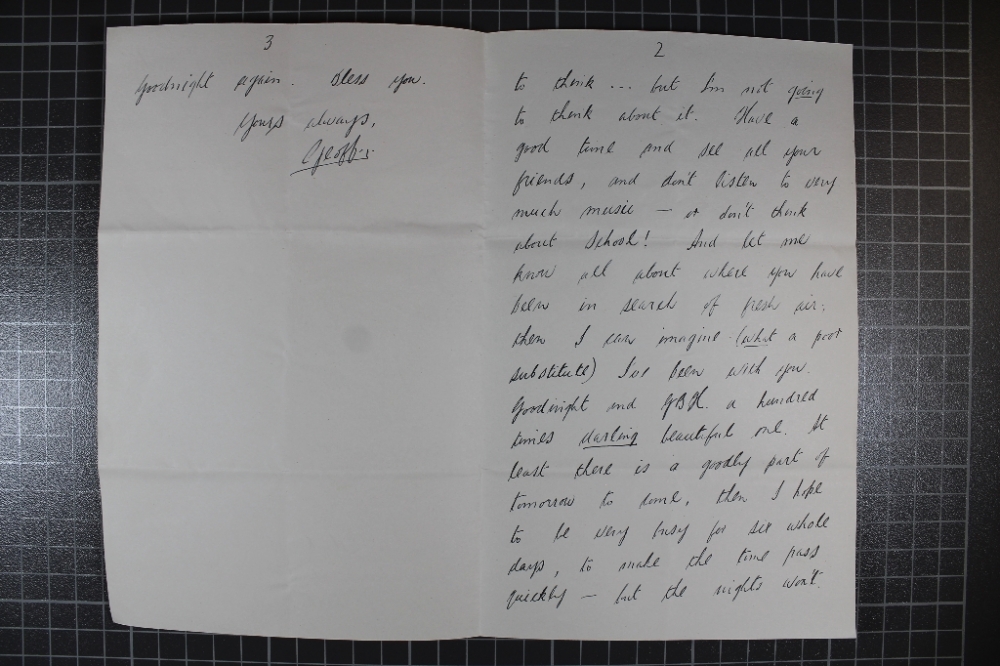 2
to think ... but I'm not going
to think about it. Have a
good time and see all your
friends, and don't listen to very
much music — or don't think
about School! And let me
know all about where you have
been in search of fresh air:
then I can imagine (what a poor
substitute) I've been with you.
Goodnight and GBH. a hundred
times darling beautiful one. At
least there is a goodly part of
tomorrow to come, then I hope
to be very busy for six whole
days, to make the time pass
quickly — but the nights won't.
3
Goodnight again. Bless you.
Yours always,
Geoff